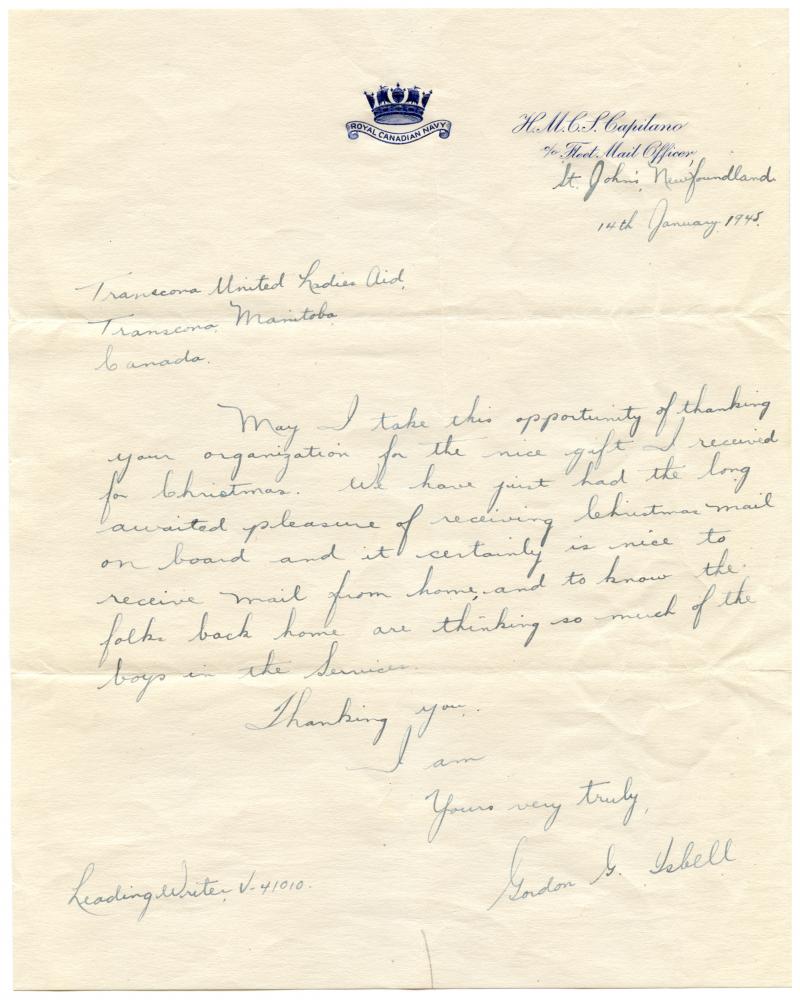 ROYAL CANADIAN NAVY
H.M.C.S. Capilano
c/o Fleet Mail Officer,
St. John's, Newfoundland.
14th January 1945.
Transcona United Ladies Aid,
Transcona, Manitoba
Canada.
May I take this opportunity of thanking
your organization for the nice gift I received
for Christmas. We have just had the long
awaited pleasure of receiving Christmas mail
on board and it certainly is nice to
receive mail from home, and to know the
folks back home are thinking so much of the
boys in the Services.
Thanking you.
I am
Yours very truly,
Gordon G. Isbell
Leading Writer, V-41010.